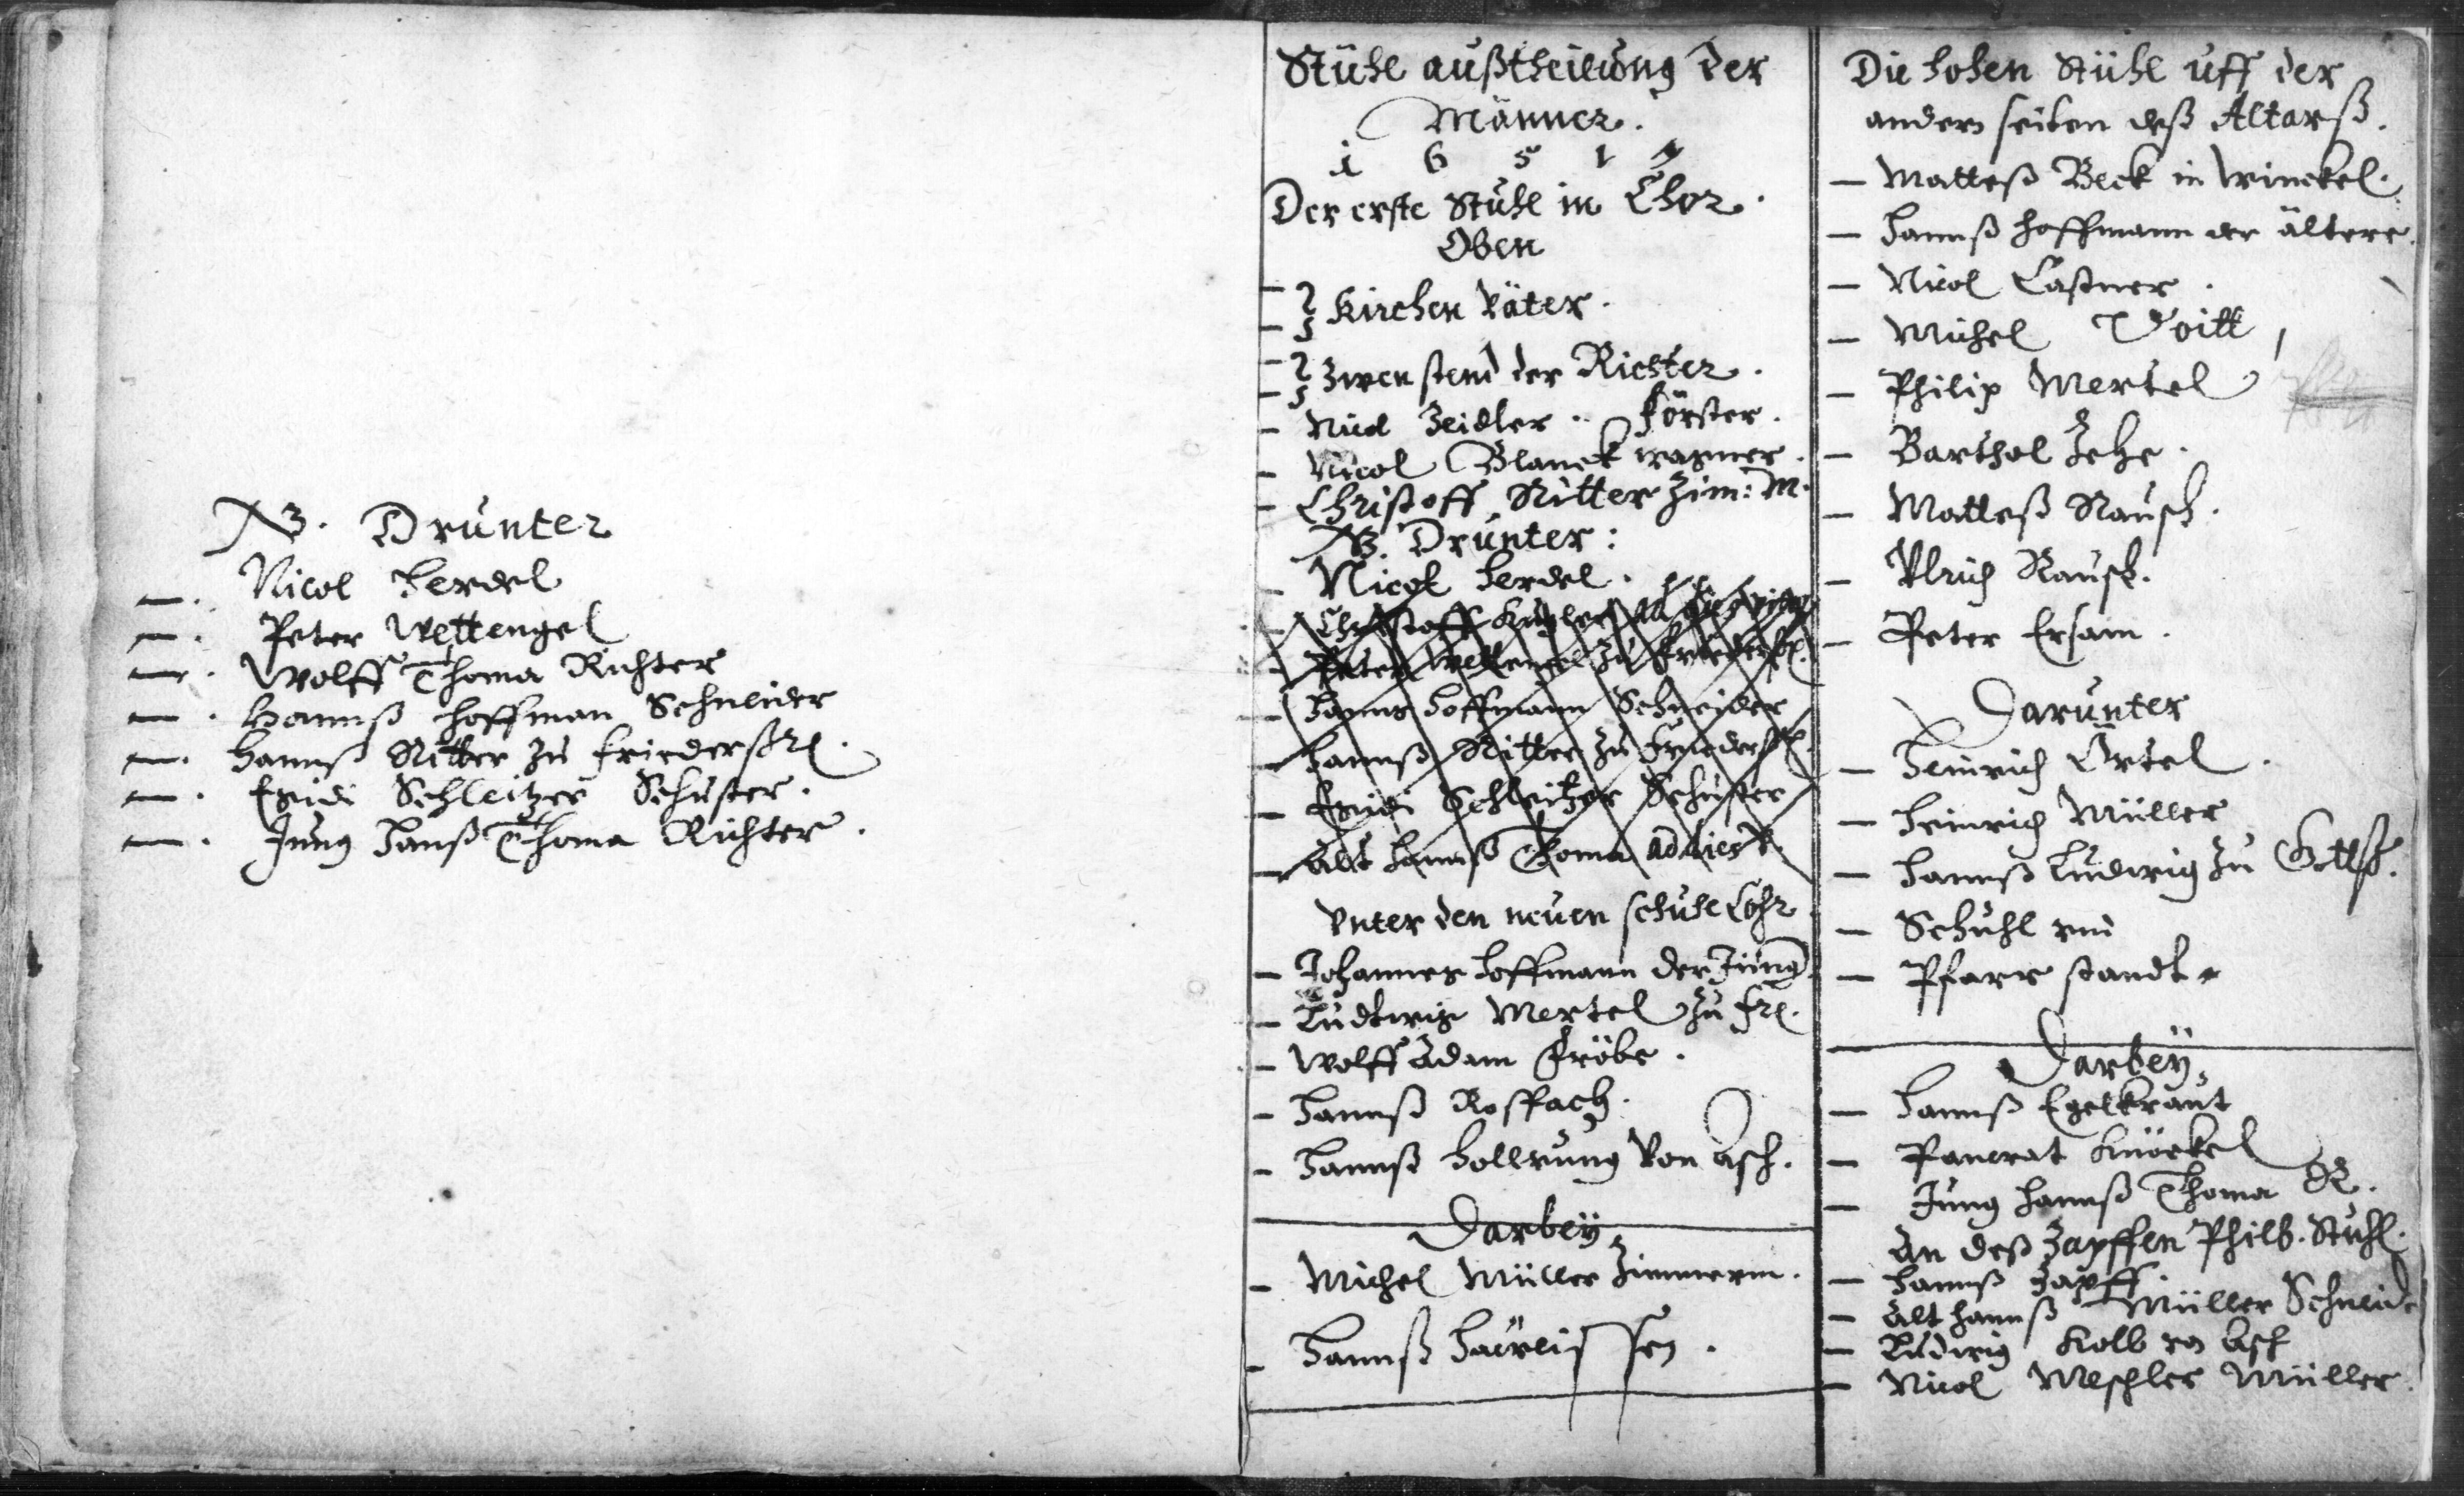 NB. Drunter
—. Nicol Herdel
—. Peter Wettengel
—. Wolff Thoma Richter
—. Hannß Hoffman Schneider
—. Hannß Ritter zu Friederßrl.
—. Egidi Schleitzer Schuster.
—. Jung Hanß Thoma Richter.
Stühl außtheilung der
Männer.
1 6 5 1
Der erste Stuhl im Chor.
Oben
— Kirchen Väter.
— zwen stend der Richter.
— Nicol Zeidler. Förster.
— Nicol Blanck wagner.
— Christoff Ritter Zim: M.
NB. Drunter:
— Nicol Herdel.
— Christoff
— Peter Wettengel zu
— Hannß Hoffmann Schneider
— Hannß Ritter zu
— Egidi Schleitzer Schuster
— Alt Hannß Thoma
Unter den neuen
— Johannes Hoffmann der Jüng.
— Ludtwig Mertel zu Frl.
— Wolff Adam Fröbe.
— Hannß Rosßach.
— Hannß Hollrung Von Asch.
Darbeÿ
— Michel Müller Zimmerm.
— Hannß
Die hohen Stühl uff der
andern seiten deß Altarß.
— Matteß Beck in Winckel.
— Hannß Hoffmann der ältere.
— Nicol Castner.
— Michel Voitt
— Philip Mertel
— Barthol Zehe.
— Matteß Rausch.
— Ulrich Rausch.
— Peter Ersam.
Darunter
— Heinrich Örtel.
— Heinrich Müller
— Hannß Ludwig zu
— Schuhl und
— Pfarr standt
Darbeÿ
— Hannß Egelkraut
— Pancrat Knöckel
— Jung Hannß Thoma
An deß Zapffen Philb. Stuhl.
— Hannß Zapff.
— Alt Hannß Müller Schneid
— Ludwig Kolb Asch
— Nicol Meschler Müller.